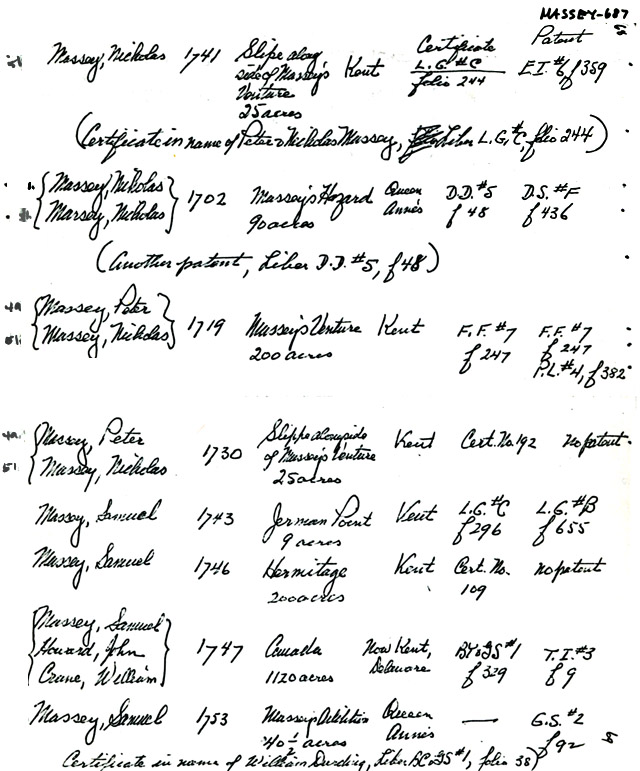 MASSEY-687
Certificate Patent
Massey, Nicholas 1741 Slipe along Kent L.G.#C E.I.#6, f 359
side of Massey's folio 244
Venture
25 acres
(Certificate in name of Peter & Nicholas Massey, Liber L.G.#C, folio 244)
Massey, Nicholas 1702 Massey's Hazard Queen D.D.#5 D.S.#F
Massey, Nicholas 90 acres Anne's f 48 f 436
(Another patent, Liber D.D.#5, f 48)
Massey, Peter 1719 Massey's Venture Kent F.F.#7 F.F.#7
Massey, Nicholas 200 acres f 247 f 247
P.L.#4, f 382
Massey, Peter 1730 Slippe alongside Kent Cert. No. 192 no patent
Massey, Nicholas of Massey's Venture
25 acres
Massey, Samuel 1743 Jerman Point Kent L.G.#C L.G.#B
9 acres f 296 f 655
Massey, Samuel 1746 Hermitage Kent Cert. No. no patent
2000 acres 109
Massey, Samuel
Howard, John 1747 Canada Now Kent, BY&GS#1 T.I.#3
Crane, William 1120 acres Delaware f 329 f 9
Massey, Samuel 1753 Massey's Addition Queen — G.S.#2
40½ acres Anne's f 92
Certificate in name of William Durding, Liber BC&GS#1, folio 38)